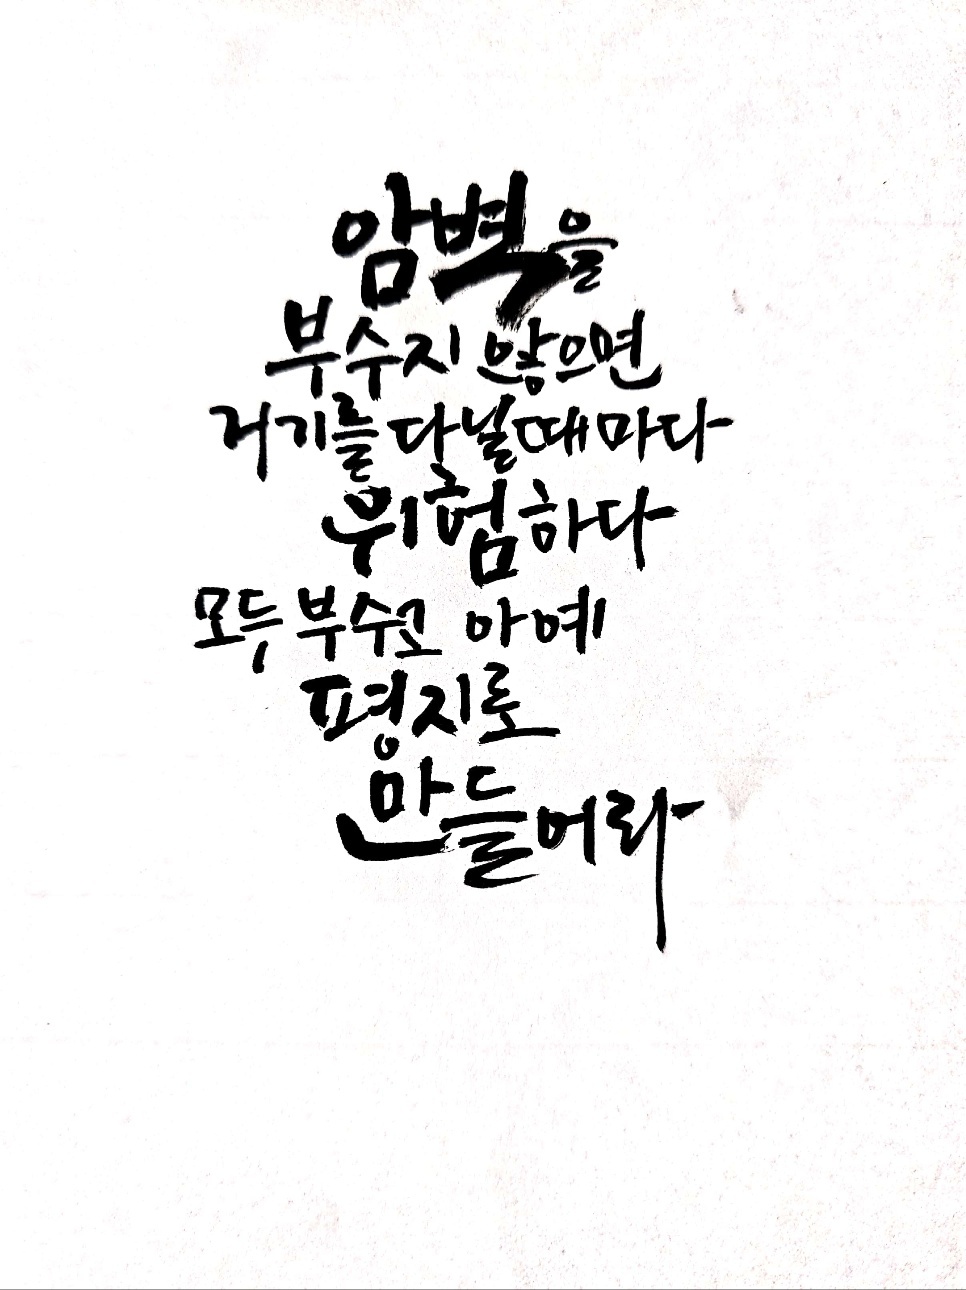 암벽을
부수지 않으면
거기를 다닐때마다
위험하다
모두 부수고 아예
평지로
만들어라